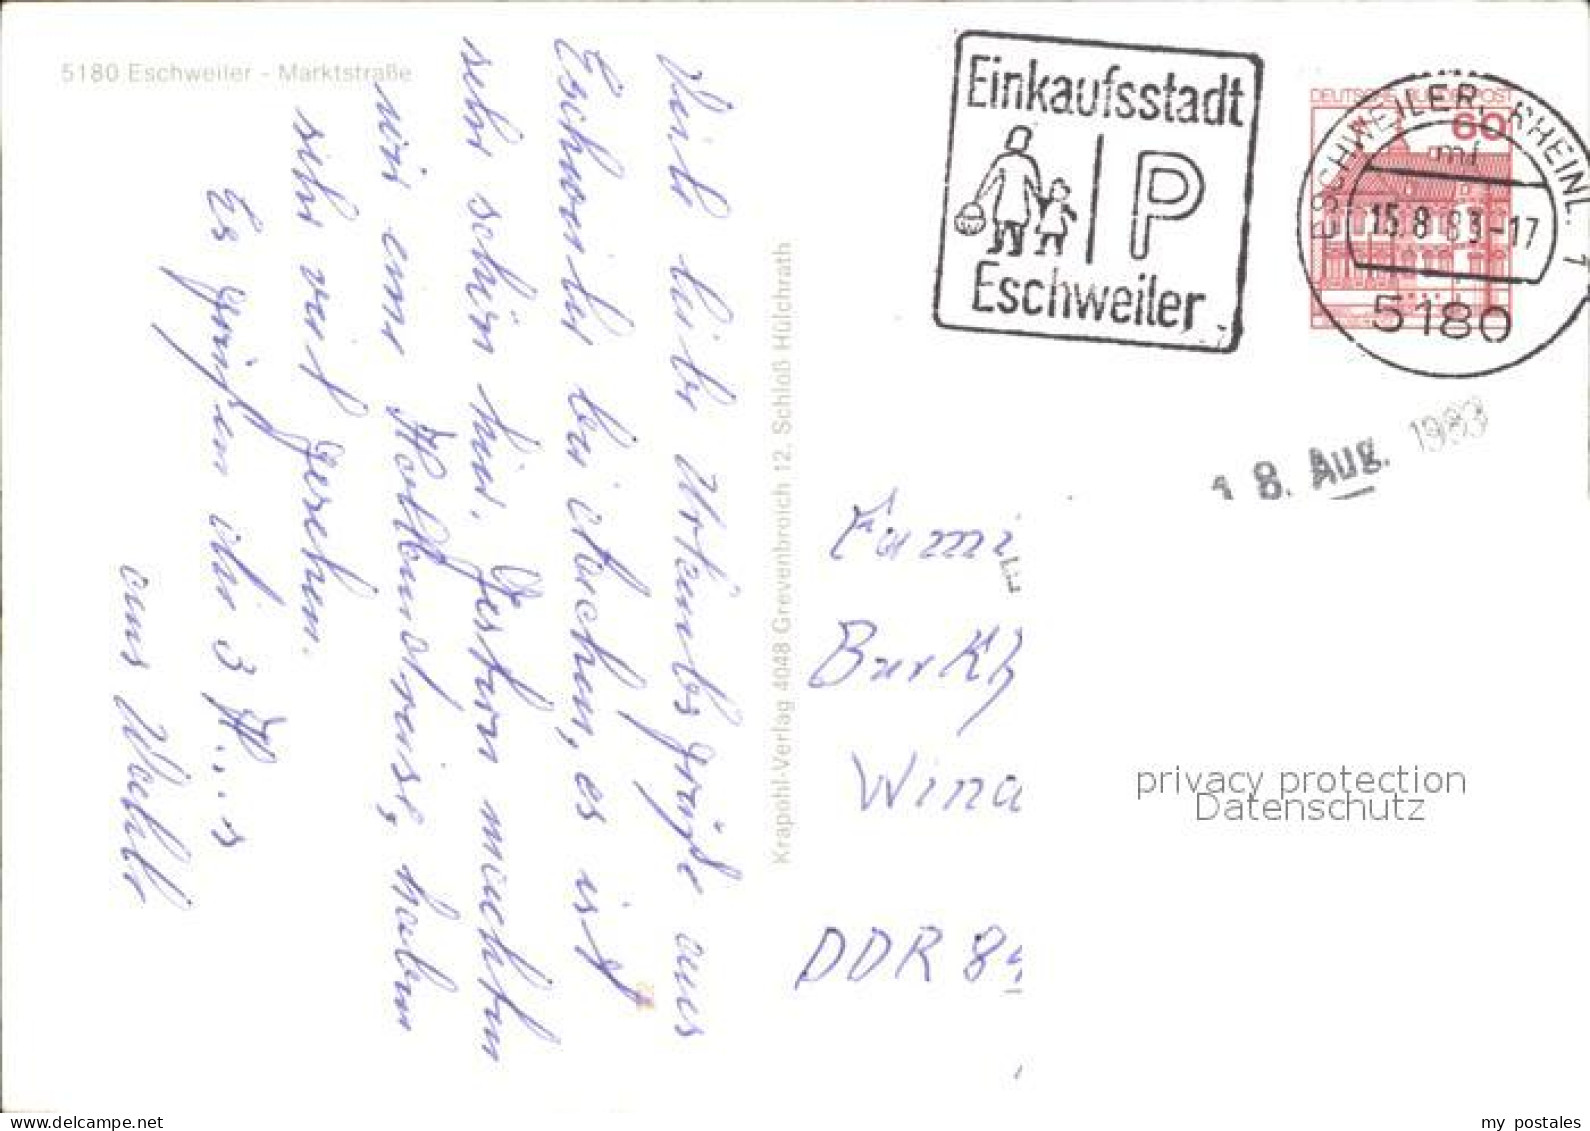 5180 Eschweiler - Marktstraße
Viele liebe Urlaubsgrüße aus
Eschweiler bei Aachen, es ist
sehr schön hier. Gestern machten
wir eine Hollandreise, haben
sehr viel gesehen.
Es grüßen ihr 3 H...s
aus Halle
Krapohl-Verlag 4048 Grevenbroich 12, Schloß Hülchrath
Einkaufsstadt
P
Eschweiler
DEUTSCHE BUNDESPOST
60
ESCHWEILER, RHEINL. 1
mf
15.8.83-17
5180
18. Aug. 1983
Fami
Burkh
Wina
DDR 89
privacy protection
Datenschutz
oldthing.de
my postales